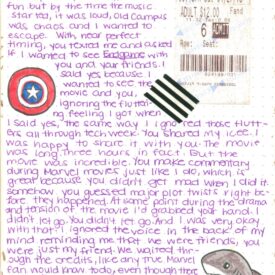 fun but by the time the music
started, it was loud, Old Campus
was chaos and I wanted to
escape. With near perfect
timing, you texted me and asked
if I wanted to see Endgame with
you and your friends. I
said yes because I
wanted to see the
movie and you,
ignoring the flutter-
ing feeling I got when
I said yes, the same way I ignored those flutt-
ers all through tech week. You shared my icee. I
was happy to share it with you. The movie
was long. Three hours in fact. But the
movie was incredible. You make commentary
during Marvel movies just like I do, which is
great because you didn't get mad when I did it.
Somehow you guessed major plot twists right be-
fore they happened. At some point during the drama
and tension of the movie I'd grabbed your hand. I
didn't let go. You didn't let go. And I was very okay
with that. I ignored the voice in the back of my
mind reminding me that we were friends, you
were just my friend. We waited thr-
ough the credits, like any true Marvel
fan would know to do, even though there
ADULT $12.00
6
Age:
Seat: